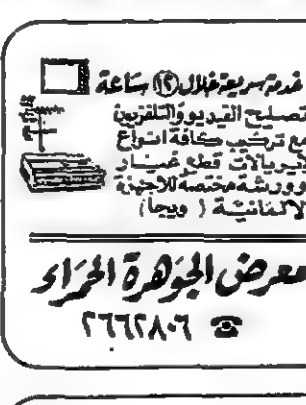 خدمة سريعة خلال ١٢ ساعة
تصليح الفيديو والتلفزيون
مع تركيب كافة انواع
قطع غيار
وورشة مختصة للاجهزة
الالمانية ( ويجا )
معرض الجوهرة الحمراء
☎ ٢٦٦٢٨٠٦